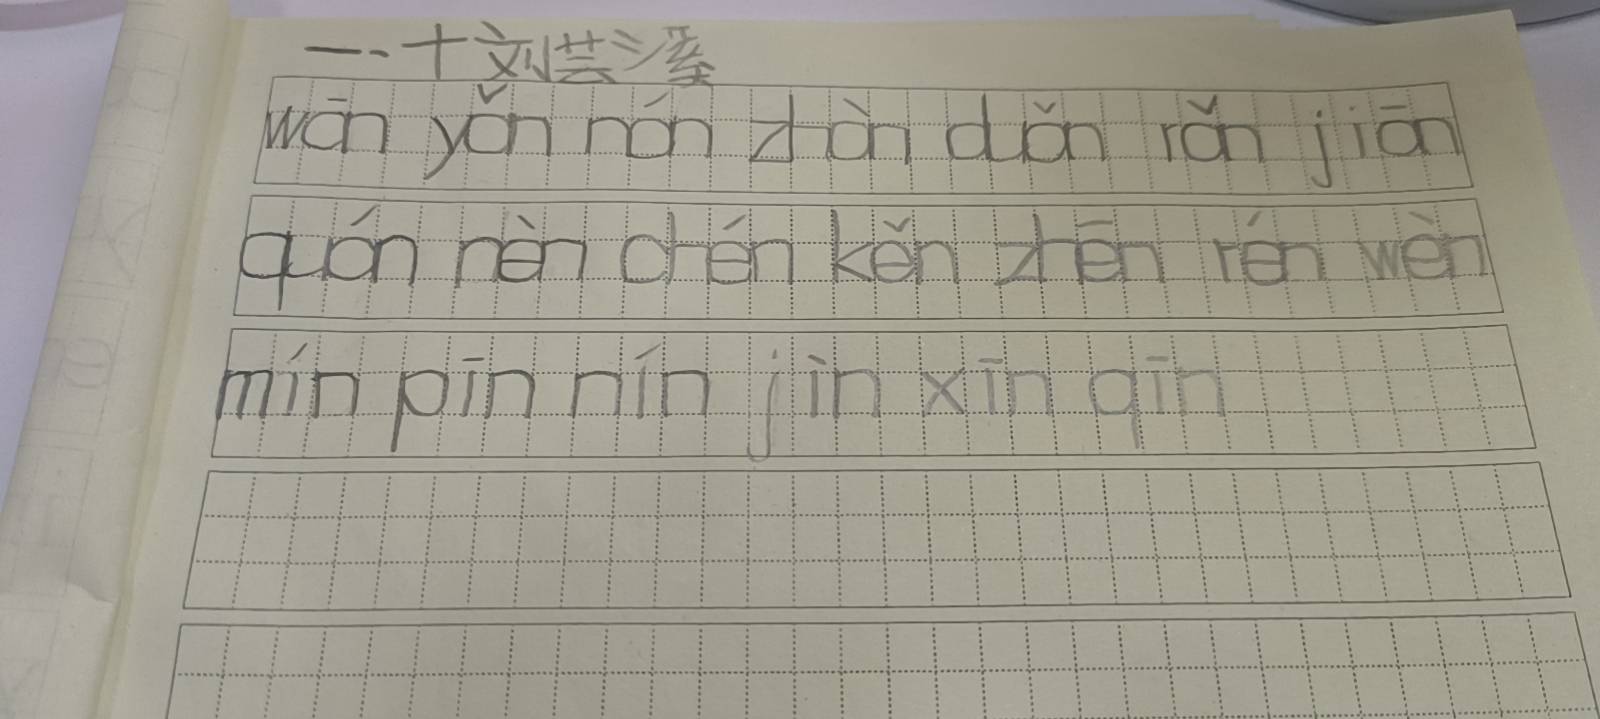 一.十刘芸溪
wān yǎn nán zhàn duǎn rǎn jiān
quán nèn chén kěn zhēn rén wèn
mín pīn nín jìn xīn qīn